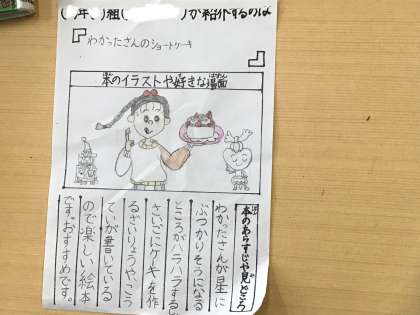 年 組( )が紹介するのは
『わかったさんのショートケーキ』
本のイラストや好きな場面
本のあらすじや見どころ
わかったさんが星に
ぶつかりそうになる
ところがハラハラするし
さいごにケーキを作
るざいりょうやこう
ていが書いている
ので楽しい絵本
です。おすすめです。